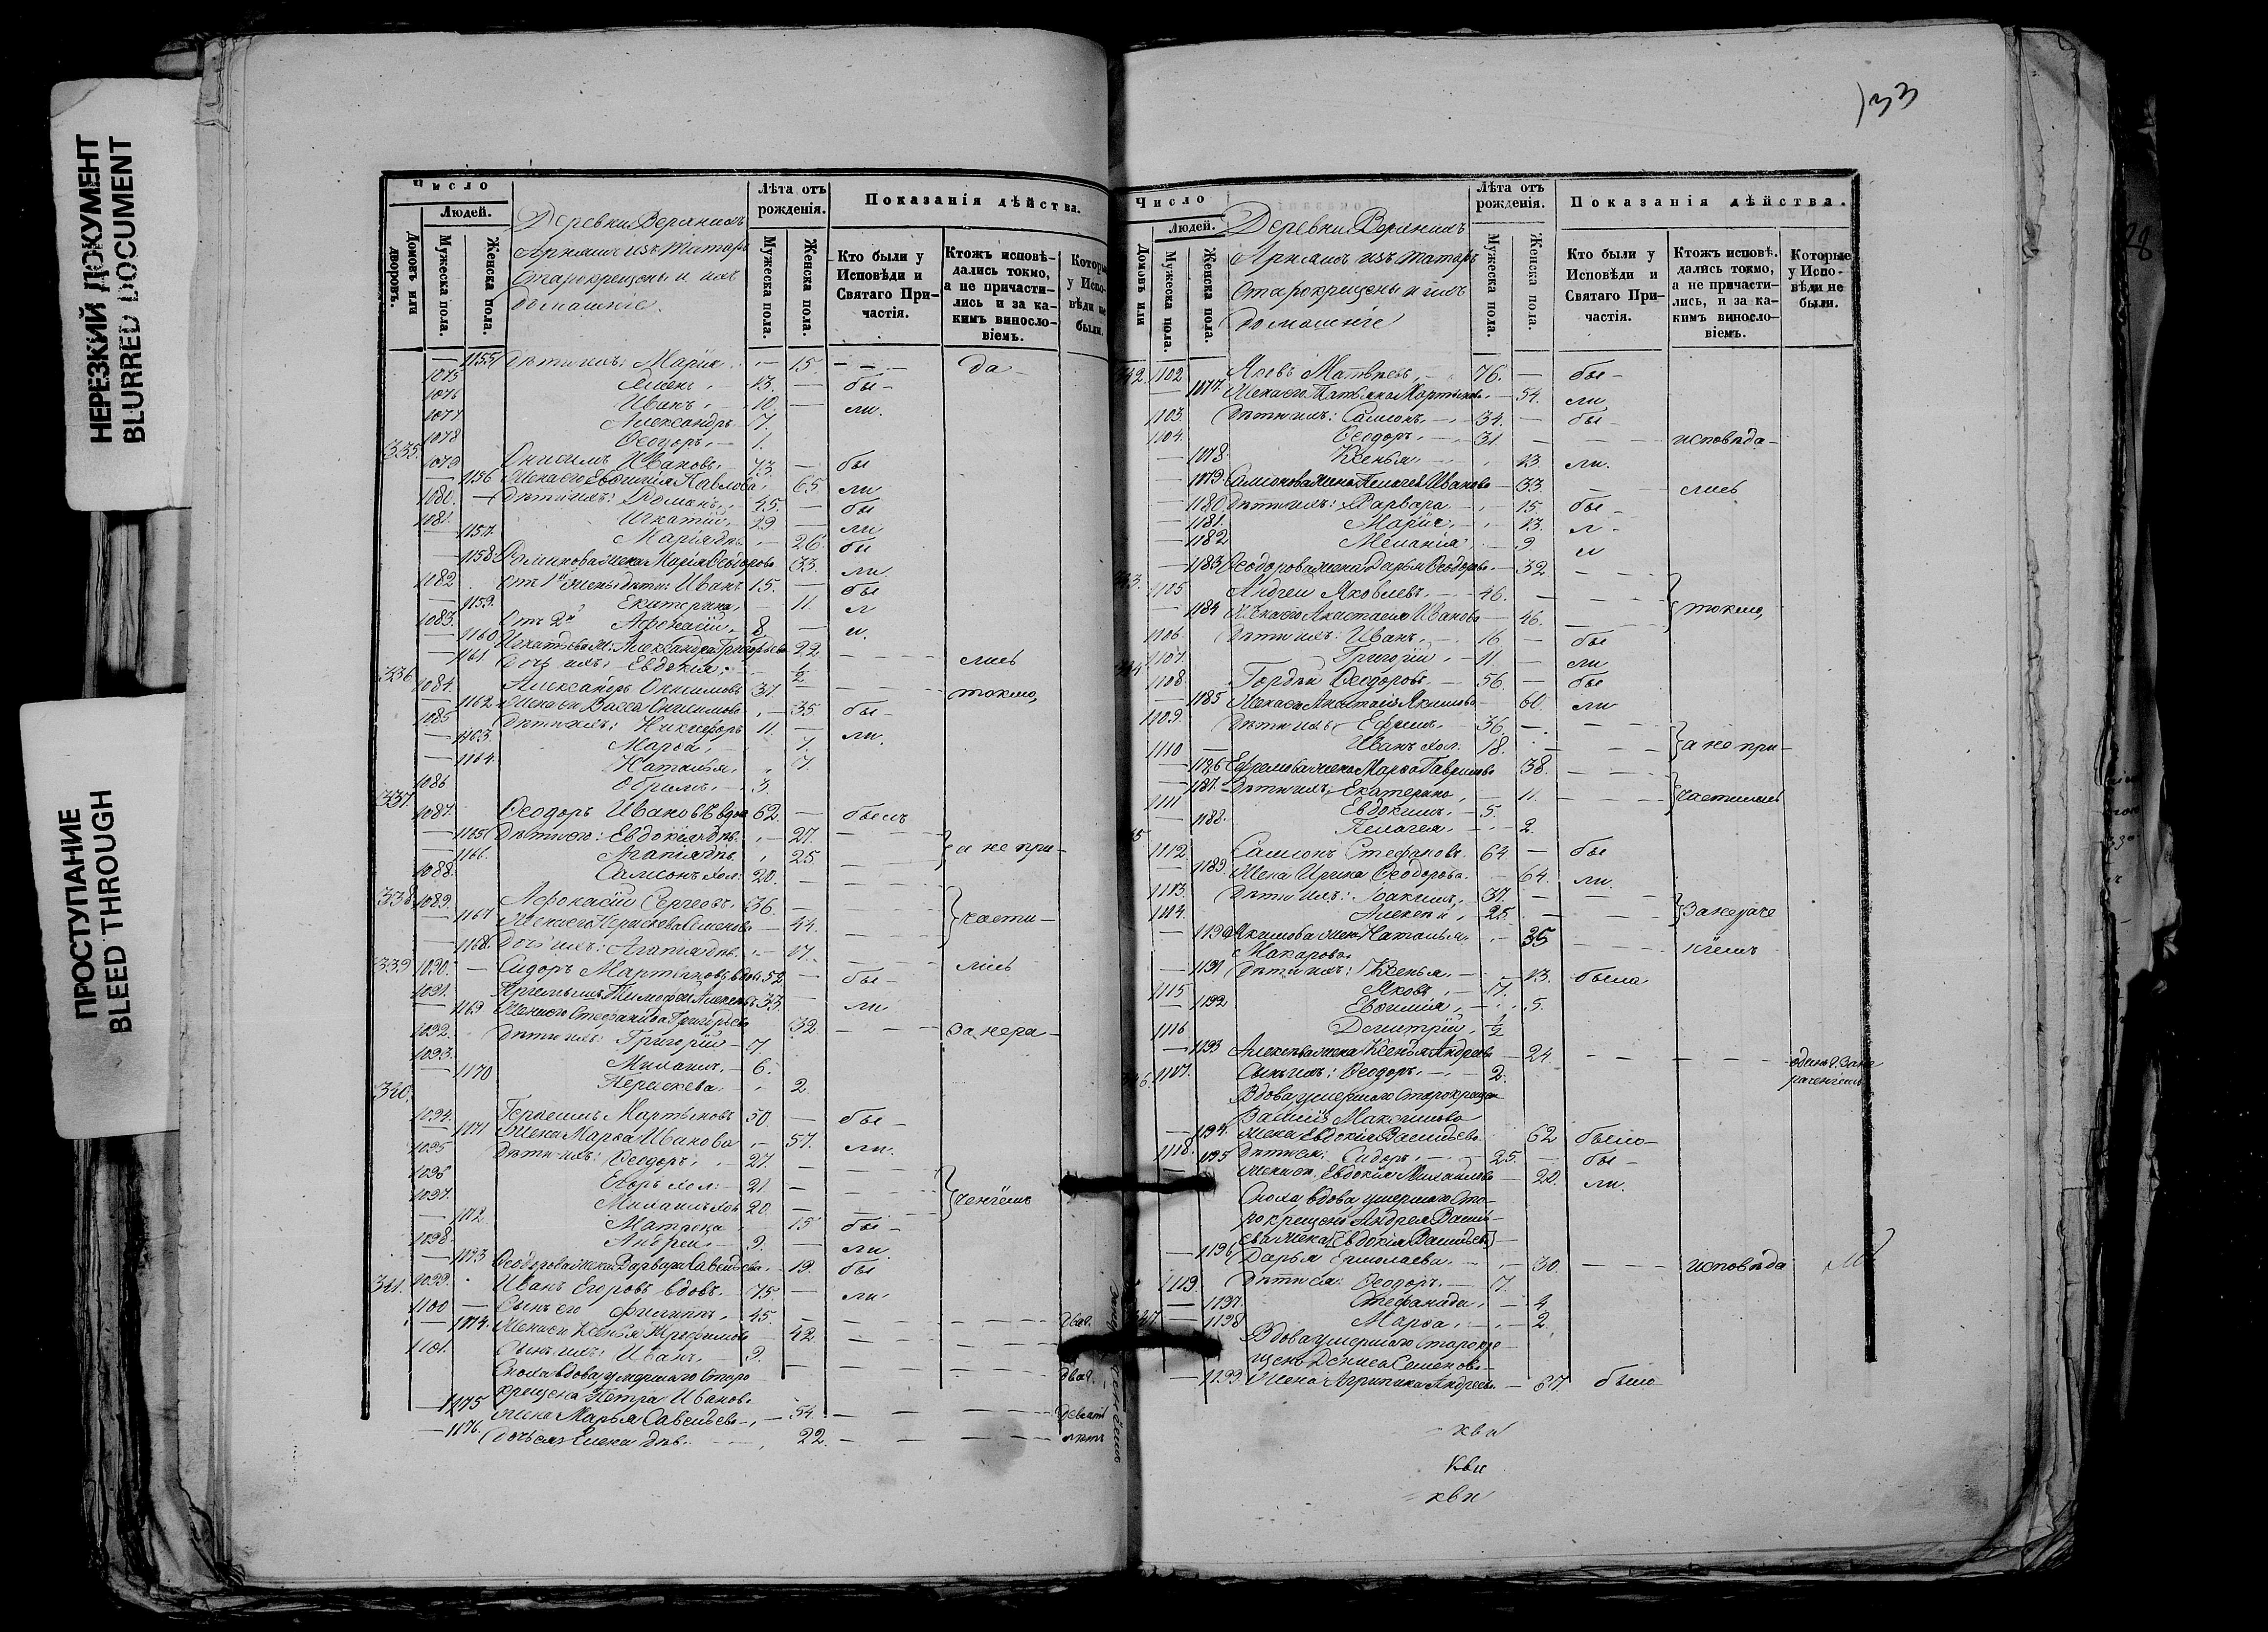 НЕРЕЗКИЙ ДОКУМЕНТ
BLURRED DOCUMENT
ПРОСТУПАНИЕ
BLEED THROUGH
Число
Людей.
Домовъ или дворовъ.
Мужеска пола.
Женска пола.
Деревни Верхнихъ
Арняшъ изъ татаръ
Старокрещены и ихъ
домашніе.
Лѣта отъ рожденія.
Мужеска пола.
Женска пола.
Показанія дѣйства.
Кто были у Исповѣди и Святаго Причастія.
Ктожъ исповѣдались токмо, а не причастились и за какимъ винословіемъ.
Которые у Исповѣди не были.
1155 Дѣти ихъ: Марія 15 да
1075 13. бы-
1076 Иванъ 10 ли.
1077 Александръ 7.
1078 Ѳеодоръ 1.
335. 1079 Онисимъ Ивановъ 73 бы
1156 Жена его Евѳимія Павлова 65 ли
1080 Дѣти ихъ: Романъ 45. бы
1081. Игнатій 19 ли
1157. Марія дѣв. 26. бы
1158 Романова жена Марія Ѳеодорова 33. ли
1082. Отъ 1й жены дѣти: Иванъ 15. бы
1159. Екатерина 11 л
1083. Отъ 2й Аѳонасій 8 и.
1160 Игнатьева ж: Александра Григорьева 22 лись
1161 Дочь ихъ Евдокія 1/2
336. 1084. Александръ Онисимовъ 37. токмо,
1162 Жена его Васса Онисимова 35 бы-
1085 Дѣти ихъ: Никифоръ 11. ли.
1163. Марѳа 7.
1164. Наталья 7.
1086 3.
337 1087. Ѳеодоръ Ивановъ вдов. 62 былъ
1165 Дѣти его: Евдокія дѣв. 27.
1166. Агапія дѣв. 25. а не при-
1088. Самсонъ хол: 20.
338 1089. Аѳонасій Сергеевъ 36.
1167 Жена его Параскова Семенова 44. части-
1168. Дочь ихъ: Агапія дѣв. 17.
339 1090. Сидоръ Мартыновъ вдов. 52 бы- лись
1091. Тимофей Алексѣевъ 33. ли
1169 Жена его Стефанида Григорьева 32. за нера-
1092. Дѣти ихъ: Григорій 7
1093. Михаилъ 6.
1170 Параскева 2
340.
1094. Герасимъ Мартыновъ 50 бы-
1171 Жена Марѳа Иванова 57. ли.
1095 Дѣти ихъ: Ѳеодоръ 27.
1096 Егоръ хол: 21
1097. Михаилъ хол 20. ченіемъ
1172 Матрена 15 бы-
1098. Андрей 9. ли.
1173 Ѳеодорова жена Варвара Савельева 19. бы
341. 1099. Иванъ Егоровъ вдовъ 75. ли
1100 Сынъ его Филиппъ 45.
1174. Жена его Ксенья Трофимова 42.
1101. Сынъ ихъ: Иванъ 9.
Сноха вдова умершаго старо
крещена Петра Иванова
1175 жена Марья Савельева 54.
1176. Дочь ея Елена дѣв. 22.
133
Число
Людей.
Домовъ или
Мужеска пола.
Женска пола.
Деревни Верхнихъ
Арняшъ изъ татаръ
Старокрещены и ихъ
домашніе
Лѣта отъ рожденія.
Мужеска пола.
Женска пола.
Показанія дѣйства.
Кто были у Исповѣди и Святаго Причастія.
Ктожъ исповѣдались токмо, а не причастились, и за какимъ винословіемъ.
Которые у Исповѣди не были.
342. 1102 Матвѣевъ 76. бы-
1177. Жена его Татьяна Мартынова 54. ли
1103. Дѣти ихъ: Самсонъ 34. бы-
1104. Ѳеодоръ 31 исповѣда-
1178. Ксенья 13. ли.
1179. Самсонова жена Пелагея Иванова 33. лись
1180 Дѣти ихъ: Варвара 15. бы-
1181. Марія 13. л-
1182 Меланія 9 и
1183 Ѳеодорова жена Дарья Ѳеодорова 32
1105 Андрей Яковлевъ 46.
1184 Жена его Анастасія Иванова 46. токмо,
1106. Дѣти ихъ: Иванъ 16 бы
1107. Григорій 11 ли
1108. Гордѣй Ѳеодоровъ 56. бы
1185 Жена его Анастасія Якимова 60. ли
1109. Дѣти ихъ: Ефремъ 36.
1110 Иванъ хол. 18. а не при-
1186 Ефремова жена Марѳа Гаврилова 38.
1187. Дѣти ихъ, Екатерина 11. частились
1111 Евдокимъ 5.
1188. Пелагея 2.
1112. Самсонъ Стефановъ 64 бы
1189. Жена Ирина Ѳеодорова 64. ли.
1113. Дѣти ихъ: Іоакимъ 37.
1114. Алексѣй 25. за нераче
1190 Акимова жена Наталья 35 ніемъ
Макарова
1191 Дѣти ихъ: Ксенья 13. была
1115 Яковъ 7.
1192 Евѳимія 5.
1116. Димитрій 1/2
1193 Алексѣева жена Ксенья Андреева 24.
1117. Сынъ ихъ: Ѳеодоръ 2.
Вдова умершаго старокрещена
Василія Максимова
1194. жена Евдокія Васильева 62 была-
1118. Дѣти ея: Сидоръ 25. бы-
1195 жена его Евдокія Михайлова 20. ли.
Сноха вдова умершаго ста-
рокрещена Андрея Василь-
ева жена [Евдокія Васильева]
1196 Дарья Ермолаева 30. исповѣда
1119. Дѣти ея: Ѳеодоръ 7.
1197. Стефанида 4
1198 Марѳа 2.
Вдова умершаго старокре
щена Дениса Семенова
1199. Жена Агрипина Андреева 67. была